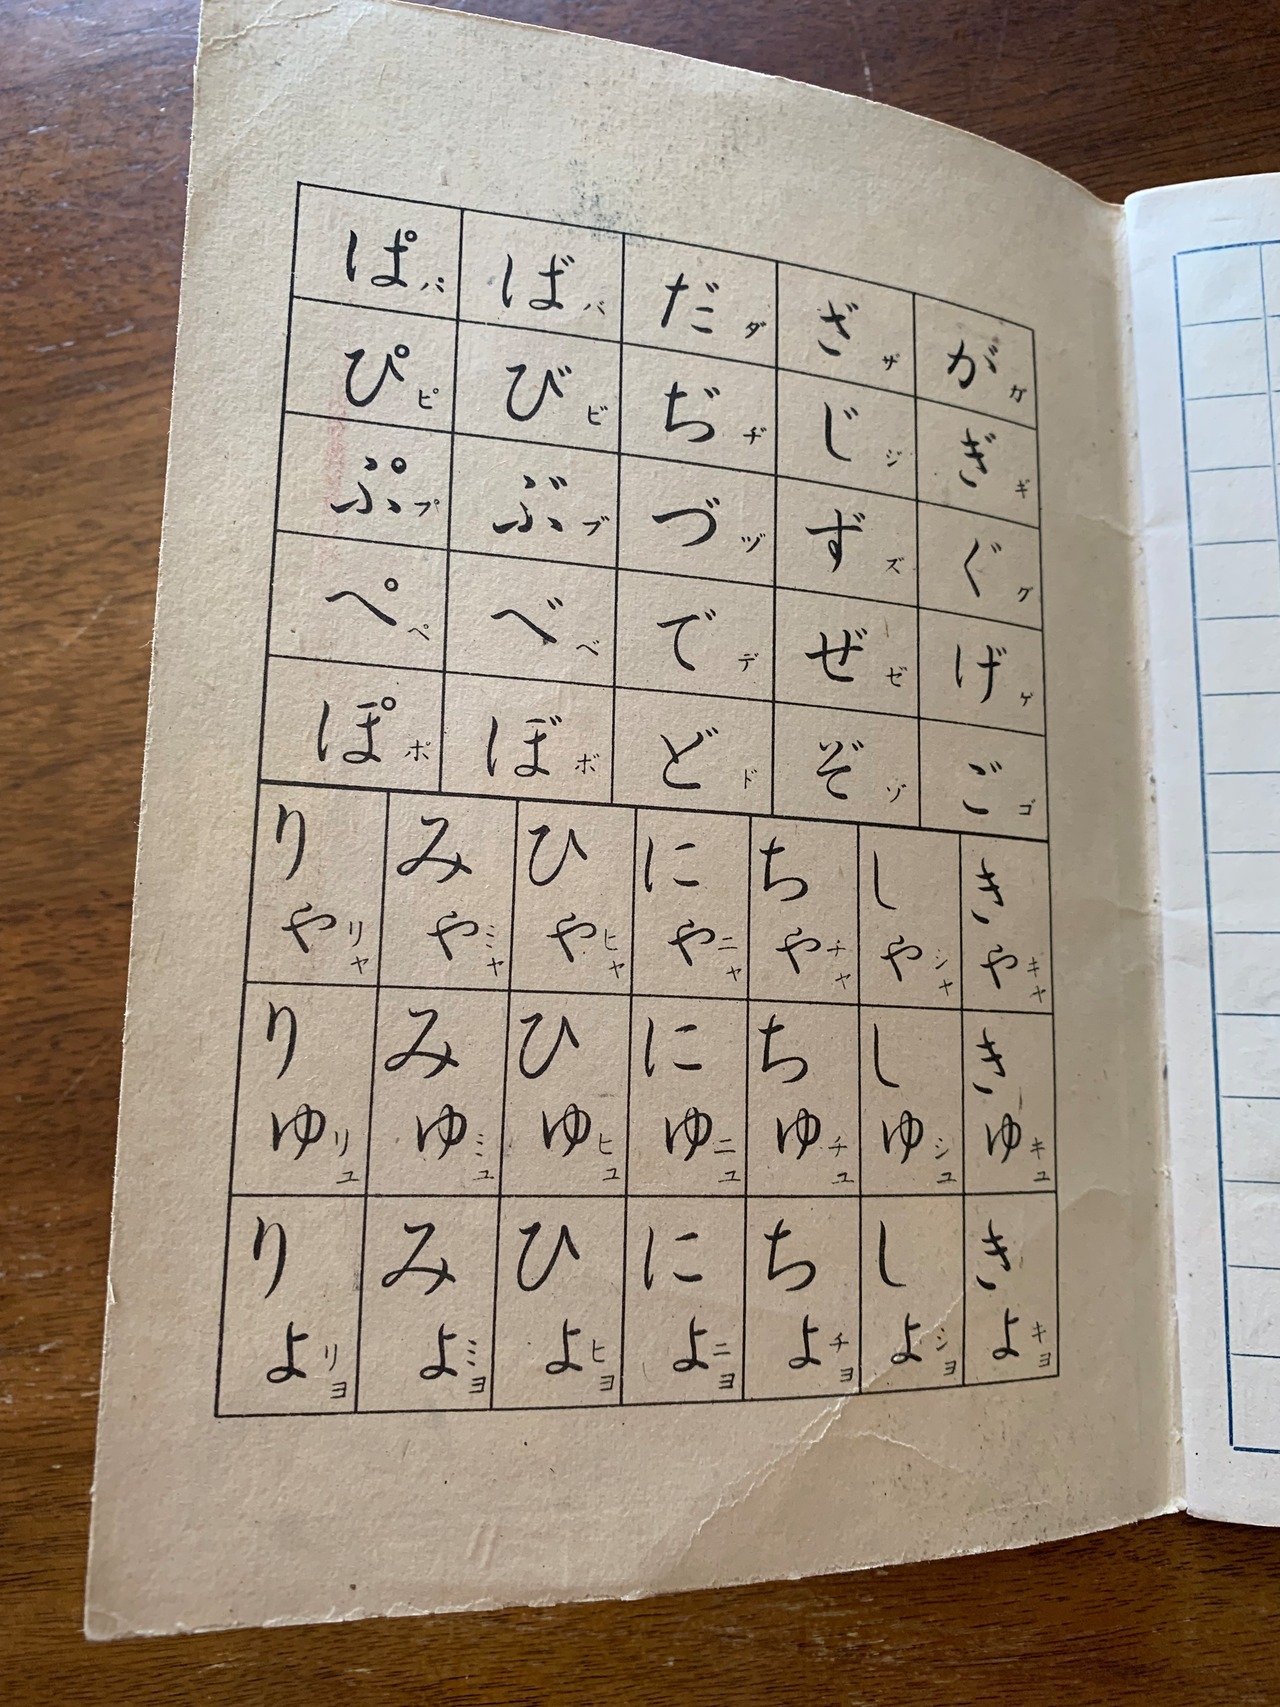 が ガ
ぎ ギ
ぐ グ
げ ゲ
ご ゴ
ざ ザ
じ ジ
ず ズ
ぜ ゼ
ぞ ゾ
だ ダ
ぢ ヂ
づ ヅ
で デ
ど ド
ば バ
び ビ
ぶ ブ
べ ベ
ぼ ボ
ぱ パ
ぴ ピ
ぷ プ
ぺ ペ
ぽ ポ
きや キヤ
きゆ キユ
きよ キヨ
しや シヤ
しゆ シユ
しよ シヨ
ちや チヤ
ちゆ チユ
ちよ チヨ
にや ニヤ
にゆ ニユ
によ ニヨ
ひや ヒヤ
ひゆ ヒユ
ひよ ヒヨ
みや ミヤ
みゆ ミユ
みよ ミヨ
りや リヤ
りゆ リユ
りよ リヨ